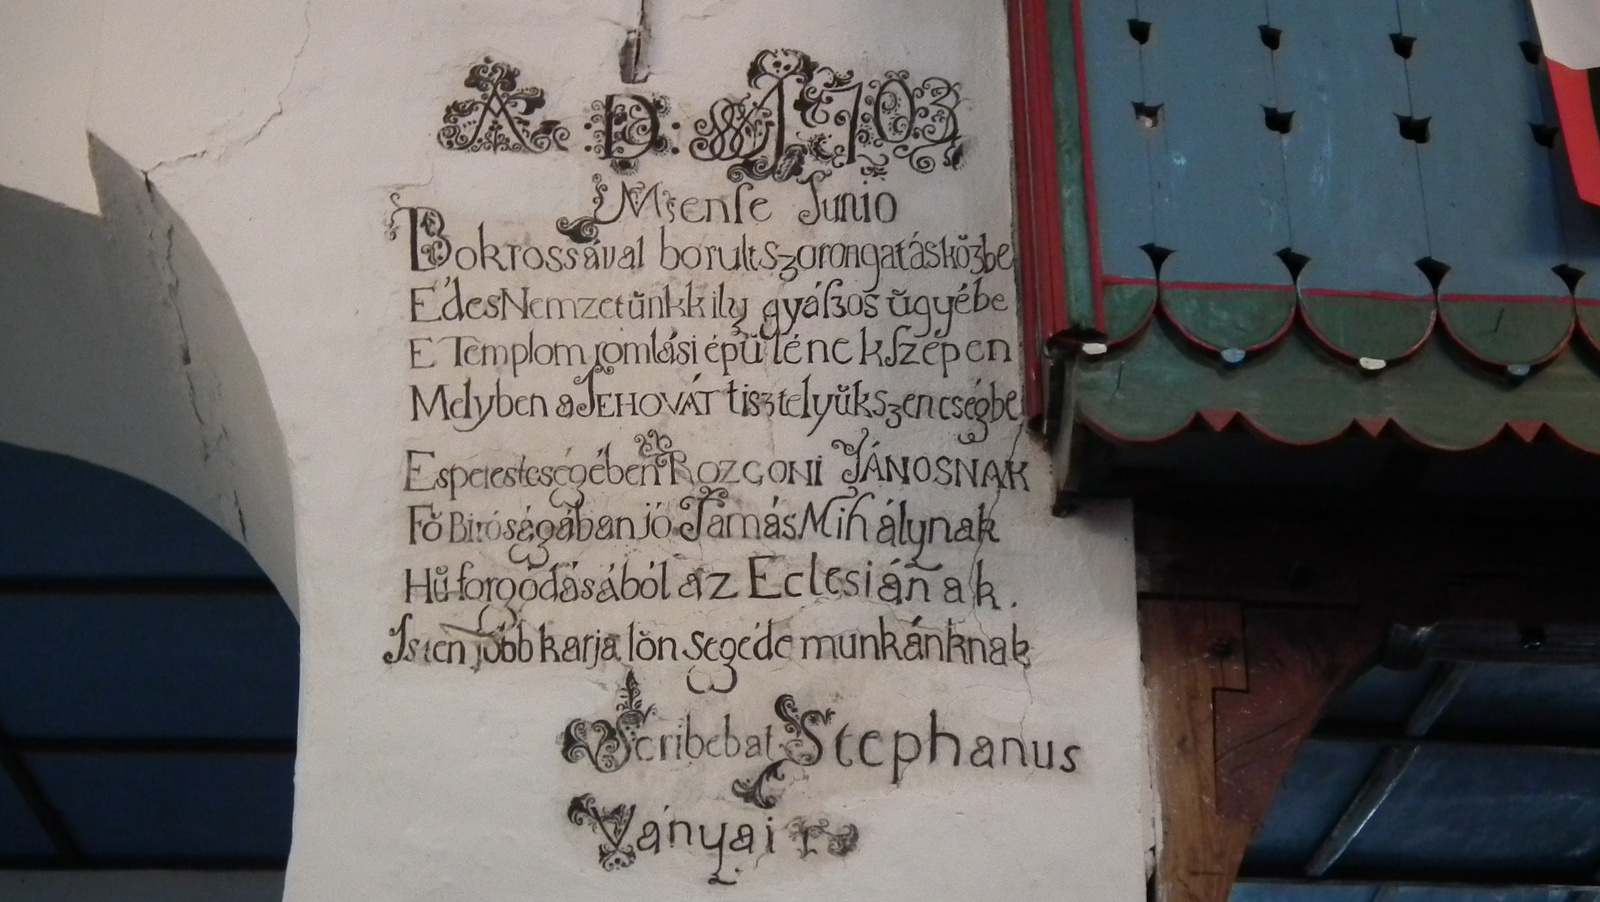 A : D : 1703
Mense Junio
Bokrossával borult szorongatás közbe
Édes Nemzetŭnkk ily gyáſzos ŭgyébe
E Templom romlási épŭlének ſzépen
Melyben a JEHOVÁT tisztelyŭk szencségbe
Esperestcségében ROZGONI JÁNOSNAK
Fŏ Biróságában jó Tamás Mihálynak
Hŭ forgodásából az Eclesiának.
Isten jobb karja lŏn segéde munkánknak
Scribebat Stephanus
Ványai